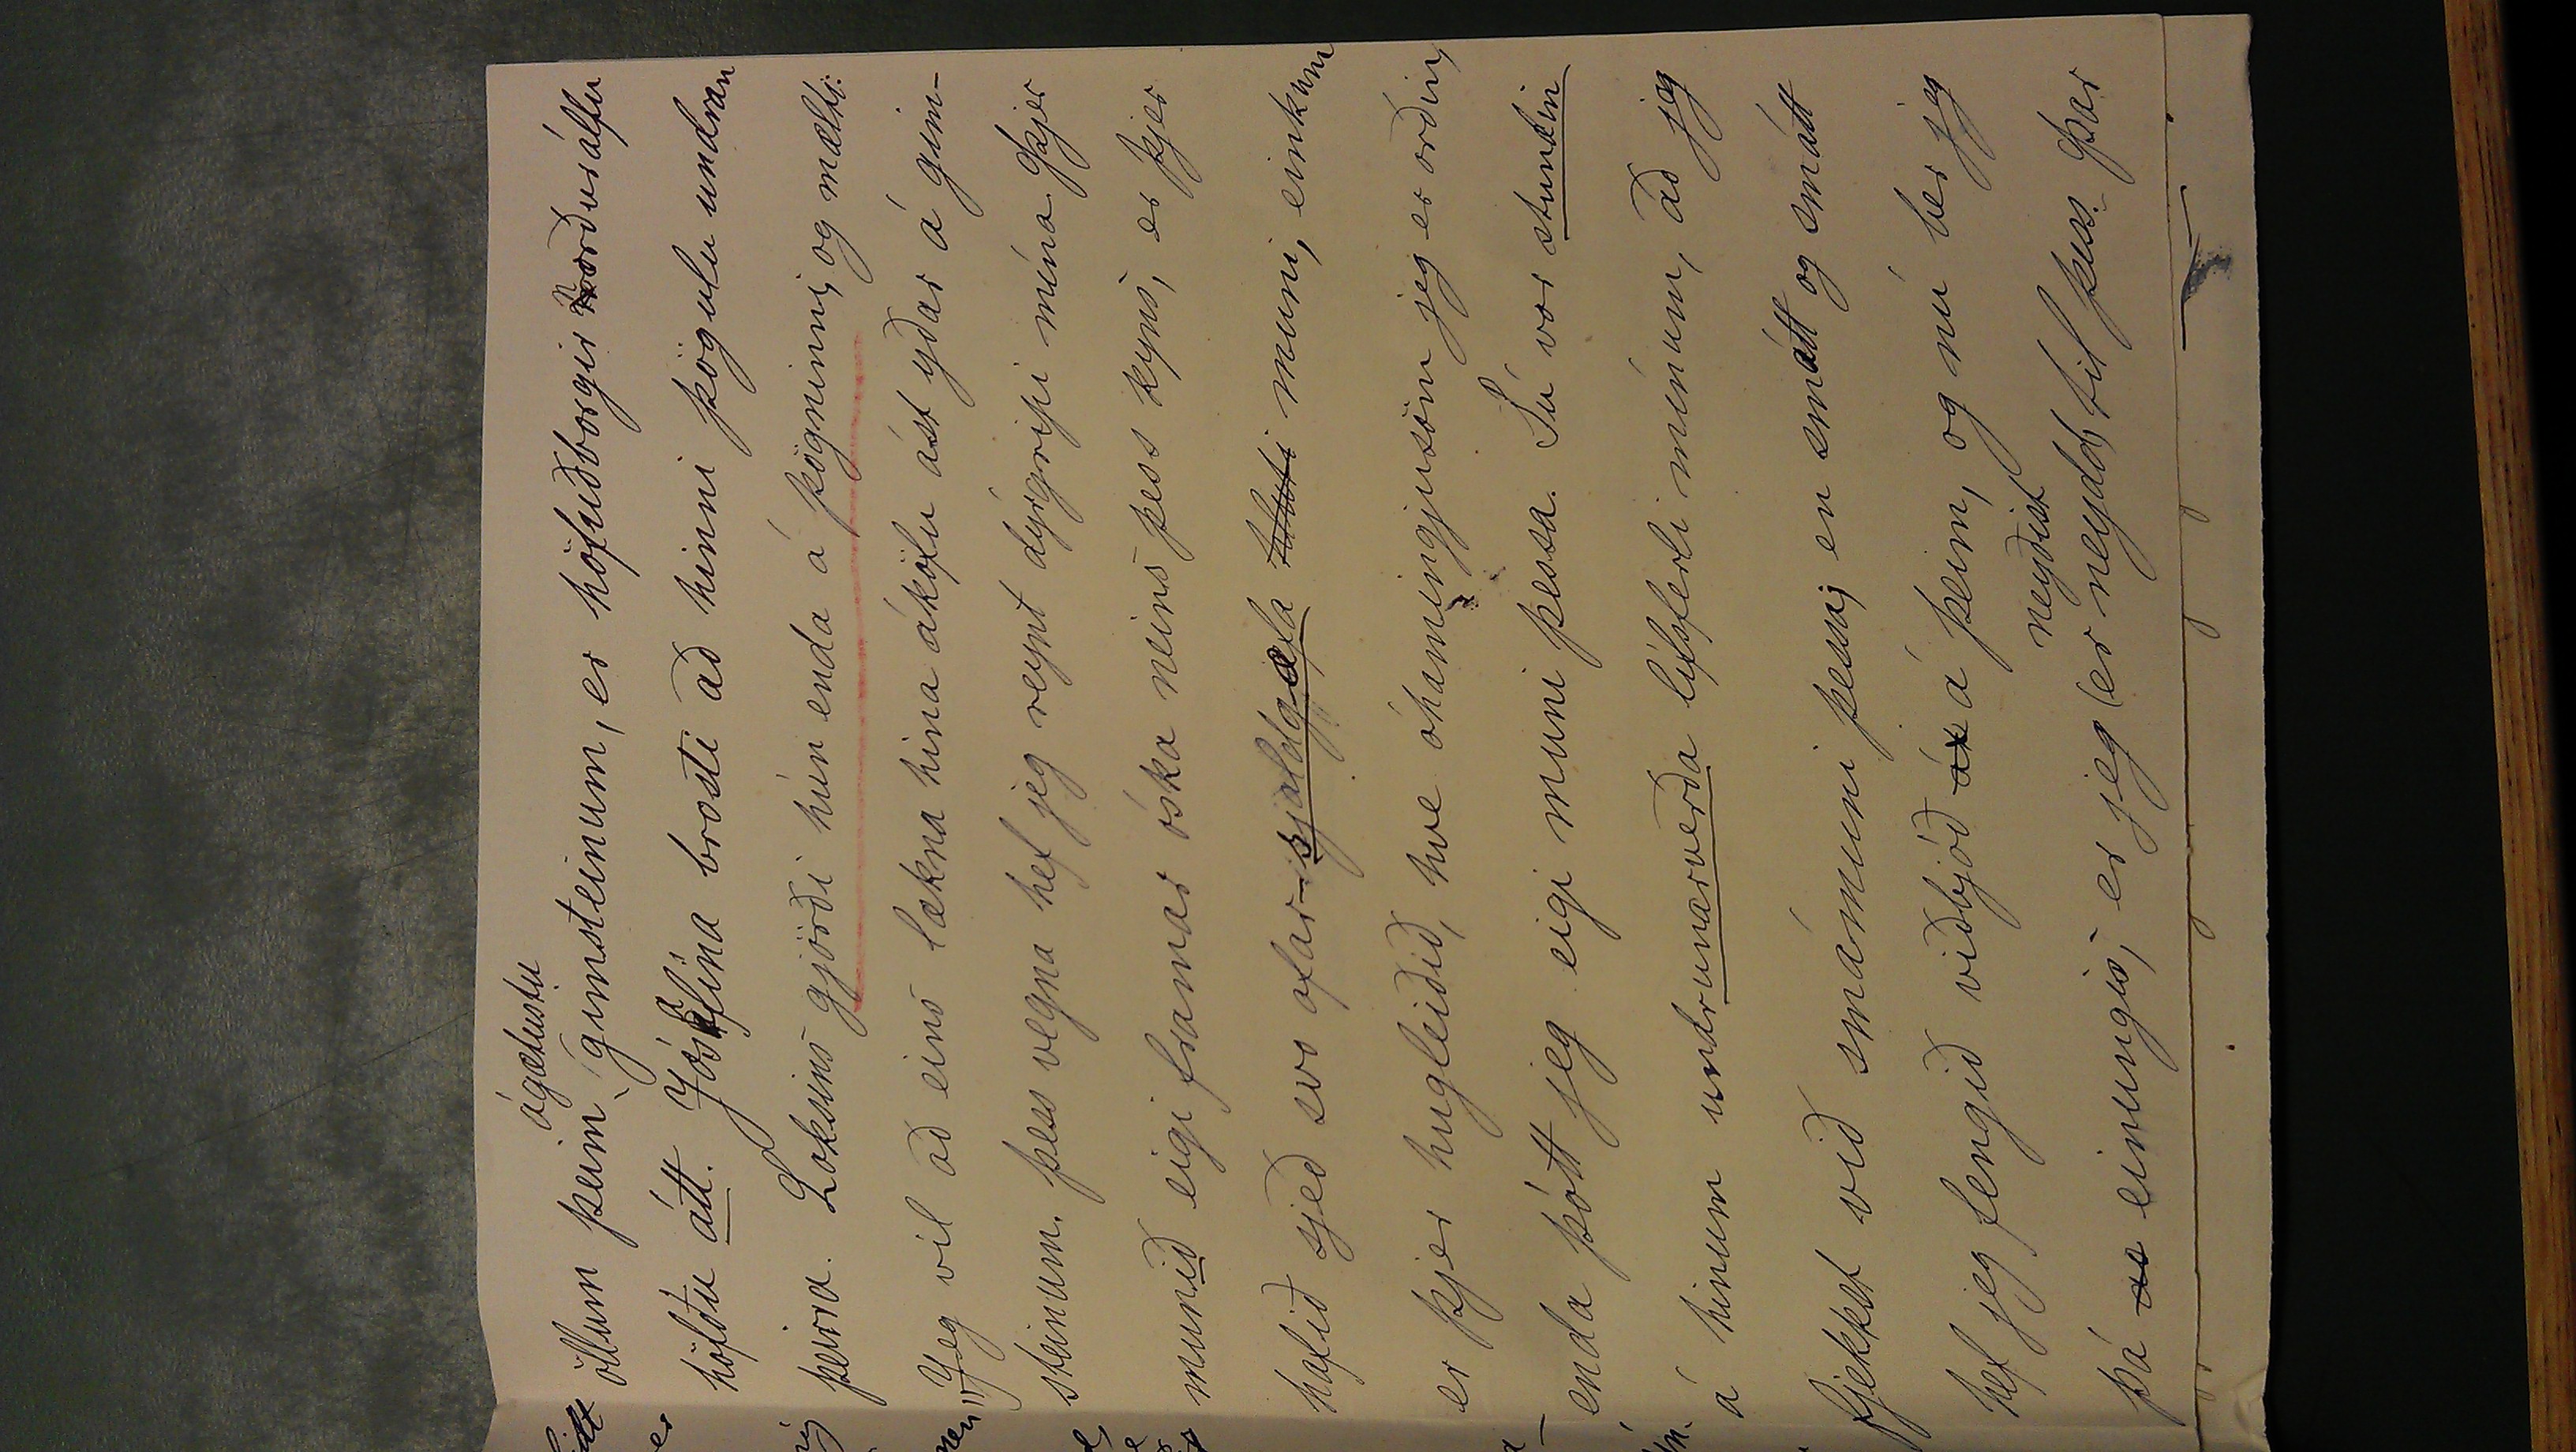 ágætustu
öllum þeim gimsteinum, er höfuðborgir norðurálfu
höfðu átt. Jósefína brosti að hinni þögulu undran
þeirra. Loksins gjörði hún enda á þögninni, og mælti:
„Jeg vil að eins lækna hina áköfu ást yðar á gim-
steinum. Þess vegna hef jeg reynt dýrgripi mína. Þjer
munið eigi framar óska neins þess kyns, er þjer
hafið sjeð svo ofar-sjaldgæfa muni, einkum
er þjer hugleiðið, hve óhamingjusöm jeg er orðin,
enda þótt jeg eigi muni þessa. Sú var stundin
á hinum undrunarverða lífsferli mínum, að jeg
fjekkst við smámuni þessa; en smátt og smátt
hef jeg fengið viðbjóð á þeim, og nú ber jeg
neyðist
þá einungis, er jeg (er neydd) til þess. Þar